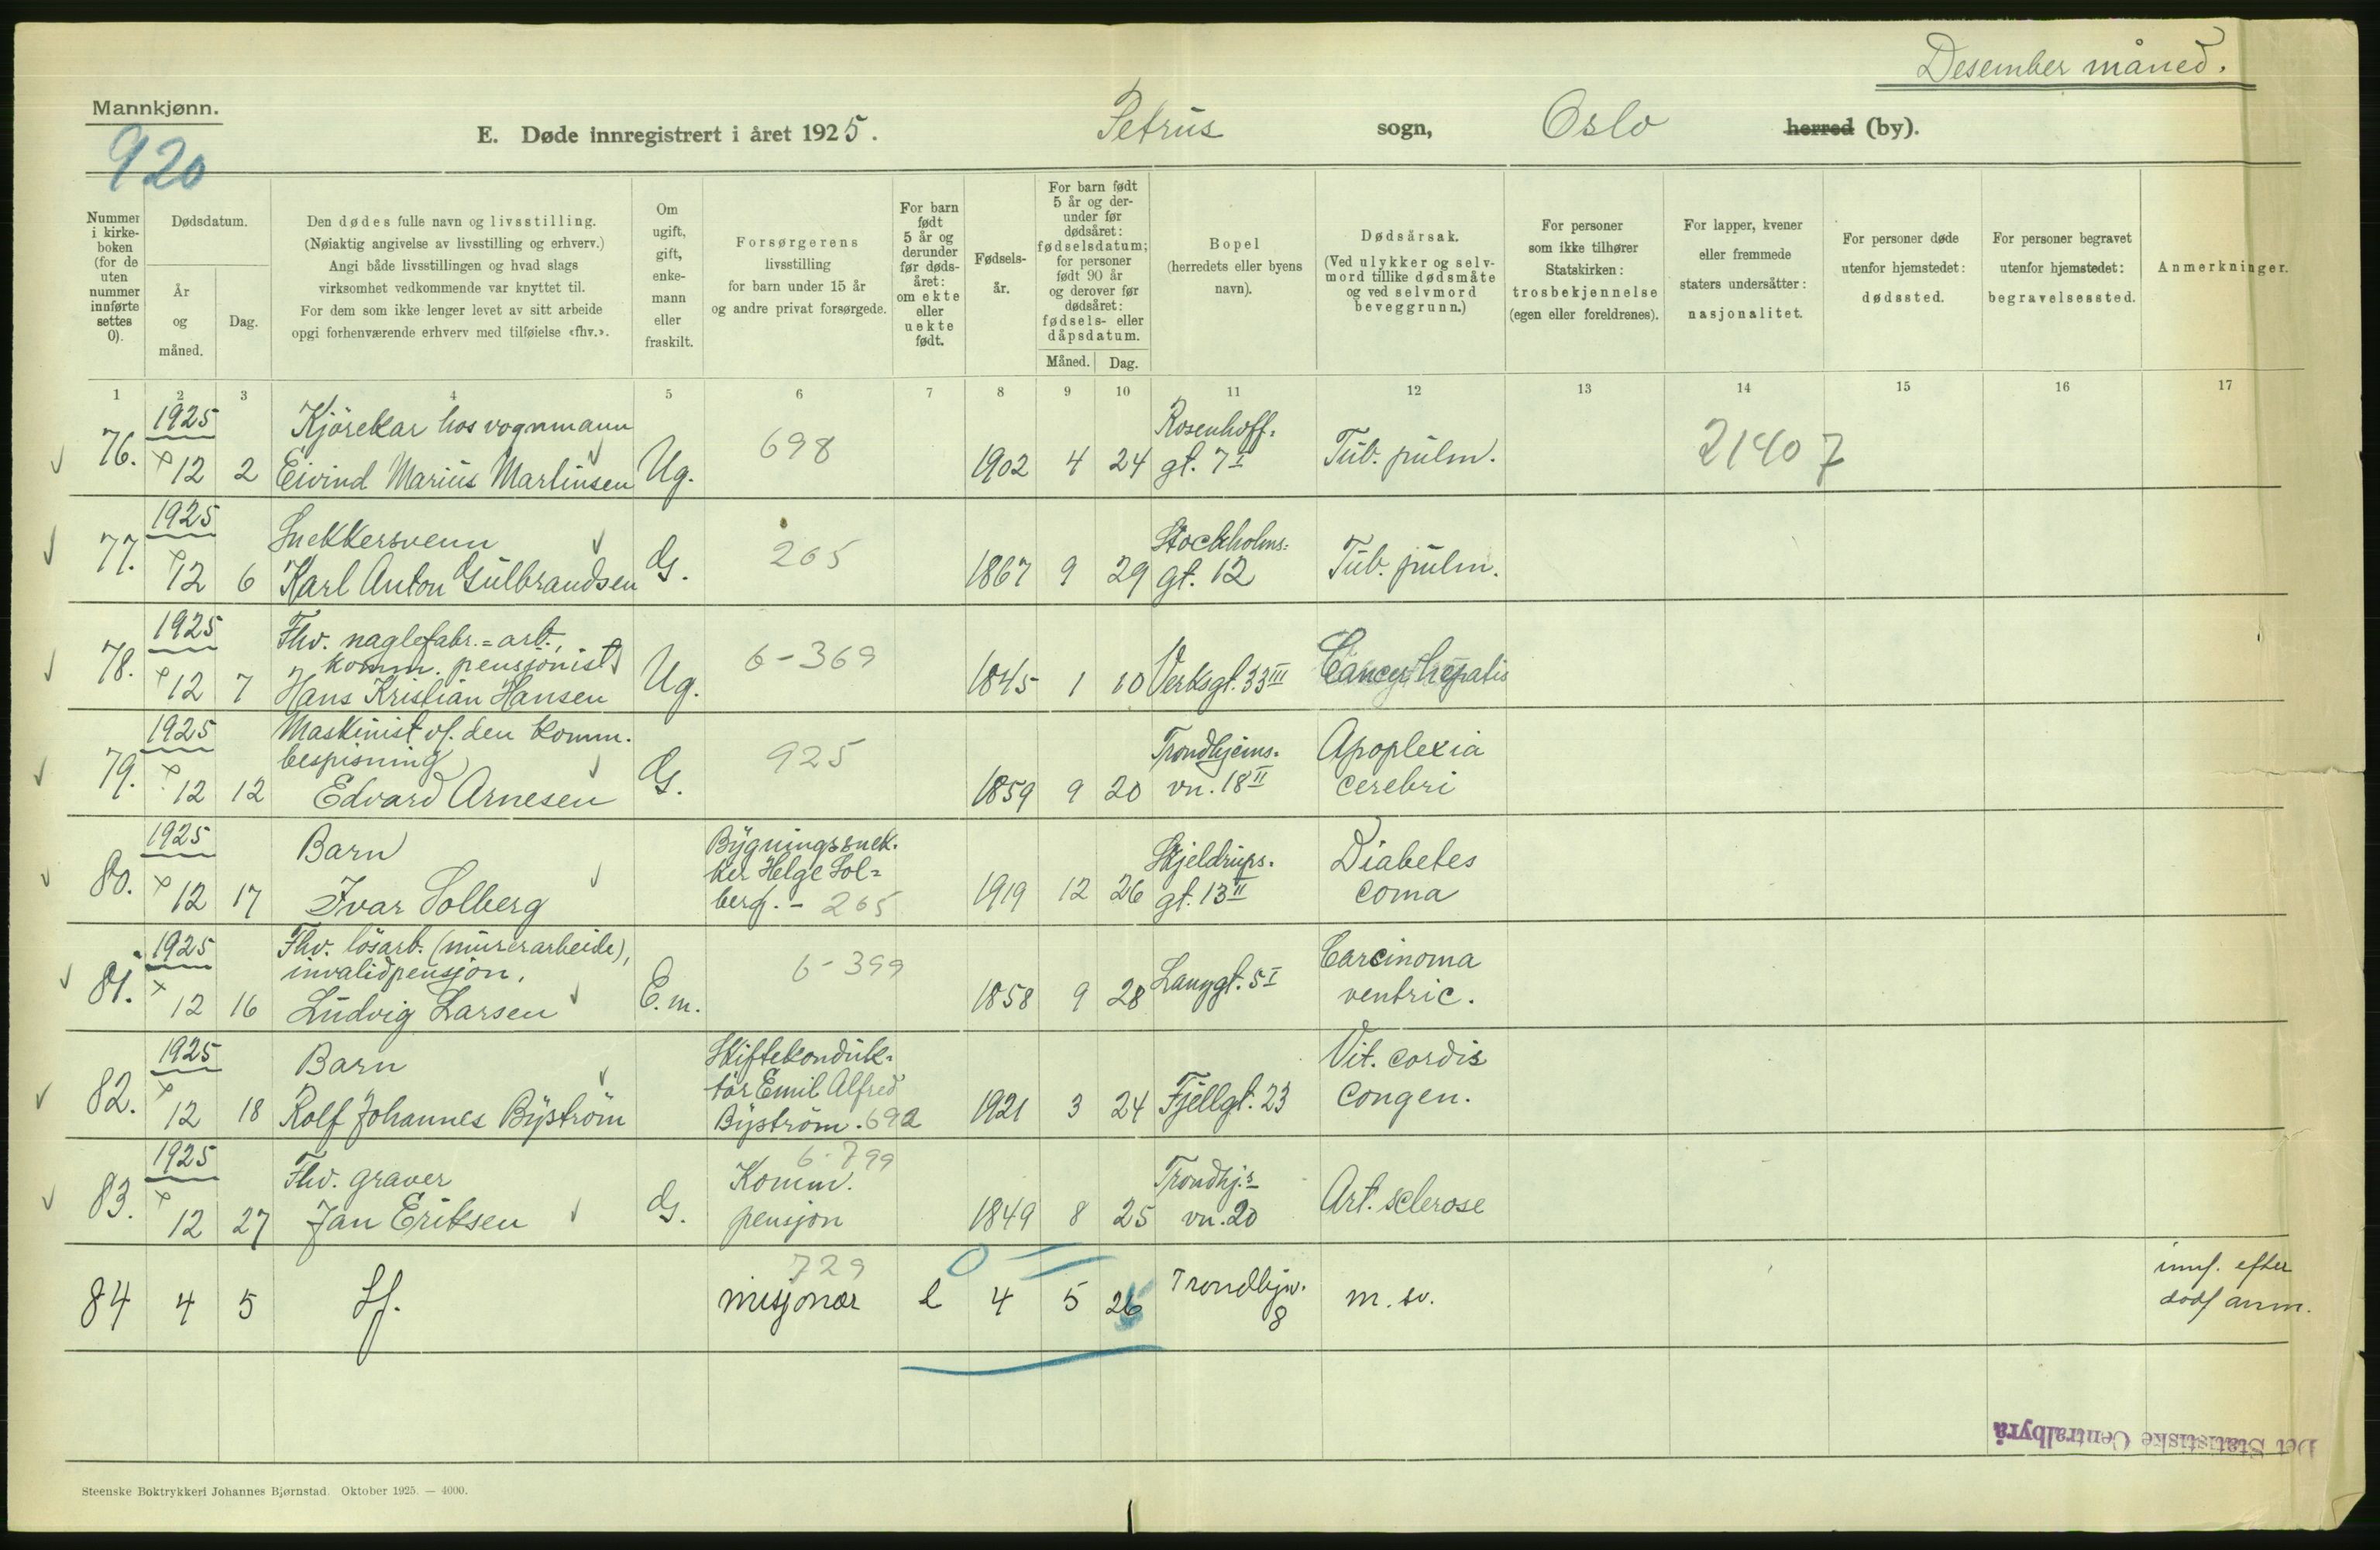 Desember måned.
Mannkjønn.
920
E. Døde innregistrert i året 1925. Petrus sogn, Oslo herred (by).
Nummer i kirke-boken (for de uten nummer innførte settes 0).
Dødsdatum.
År og måned.
Dag.
Den dødes fulle navn og livsstilling.
(Nøiaktig angivelse av livsstilling og erhverv.)
Angi både livsstillingen og hvad slags
virksomhet vedkommende var knyttet til.
For dem som ikke lenger levet av sitt arbeide
opgi forhenværende erhverv med tilføielse «fhv.».
Om ugift, gift, enke-mann eller fraskilt.
Forsørgerens
livsstilling
for barn under 15 år
og andre privat forsørgede.
For barn født 5 år og derunder før døds-året: om ekte eller uekte født.
Fødsels-år.
For barn født 5 år og der-under før dødsåret: fødselsdatum; for personer født 90 år og derover før dødsåret: fødsels- eller dåpsdatum.
Måned. Dag.
Bopel
(herredets eller byens
navn).
Dødsårsak.
(Ved ulykker og selv-
mord tillike dødsmåte
og ved selvmord
beveggrunn.)
For personer
som ikke tilhører
Statskirken:
trosbekjennelse
(egen eller foreldrenes).
For lapper, kvener
eller fremmede
staters undersåtter:
nasjonalitet.
For personer døde
utenfor hjemstedet:
dødssted.
For personer begravet
utenfor hjemstedet:
begravelsessted.
Anmerkninger.
1 2 3 4 5 6 7 8 9 10 11 12 13 14 15 16 17
1925 Kjörekar hos vognmann Rosenhoff=
76. 12 2 Eivind Marius Martinsen Ug. 698 1902 4 24 gt. 7 I Tub. pulm. 21407
1925 Snekkersvenn Stockholms=
77. 12 6 Karl Anton Gulbrandsen G. 265 1867 9 29 gt. 12 Tub. pulm.
1925 Fhv. naglefabr.=arb.,
komm. pensjonist
78. 12 7 Hans Kristian Hansen Ug. 6-369 1845 1 10 Verksgt. 33 III Cancer hepatis
1925 Maskinist v/ den komm.
bespisning Trondhjems- Apoplexia
79. 12 12 Edvard Arnesen G. 925 1859 9 20 vn. 18 II cerebri
1925 Barn Bygningssnek-
ker Helge Sol= Skjeldrups- Diabetes
80. 12 17 Ivar Solberg berg. - 265 1919 12 26 gt. 13 II coma
1925 Fhv. lösarb. (murerarbeide),
invalidpensjon. Carcinoma
81. 12 16 Ludvig Larsen E. m. 6-399 1858 9 28 Langgt. 5 I ventric.
1925 Barn Skiftekonduk-
tör Emil Alfred Vit. cordis
82. 12 18 Rolf Johannes Byström Byström. 692 1921 3 24 Fjellgt. 23 congen.
1925 Fhv. graver 6-799
Komm. Trondhj.s
83. 12 27 Jan Eriksen G. pensjon 1849 8 25 vn. 20 Art. sclerose
729 0
84 4 5 misjonær e 4 5 Trondhjw. 8 m. sv. innf. efter
dødf anm.
Det Statistiske Centralbyrå
Steenske Boktrykkeri Johannes Bjørnstad. Oktober 1925. — 4000.